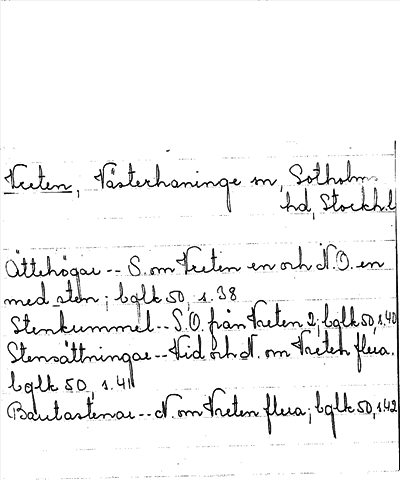 Vreten, Västerhaninge sn, Sotholms
hd, Stockh.l
Ättehögar -- S. om Vreten en och N.O. en
med sten; bglk 50, s. 38
Stenkummel -- S.O. från Vreten 2; bglk 50, s. 40
Stensättningar -- Vid och N. om Vreten flera.
bglk 50, s. 41
Bautastenar -- N. om Vreten flera; bglk 50, s 42